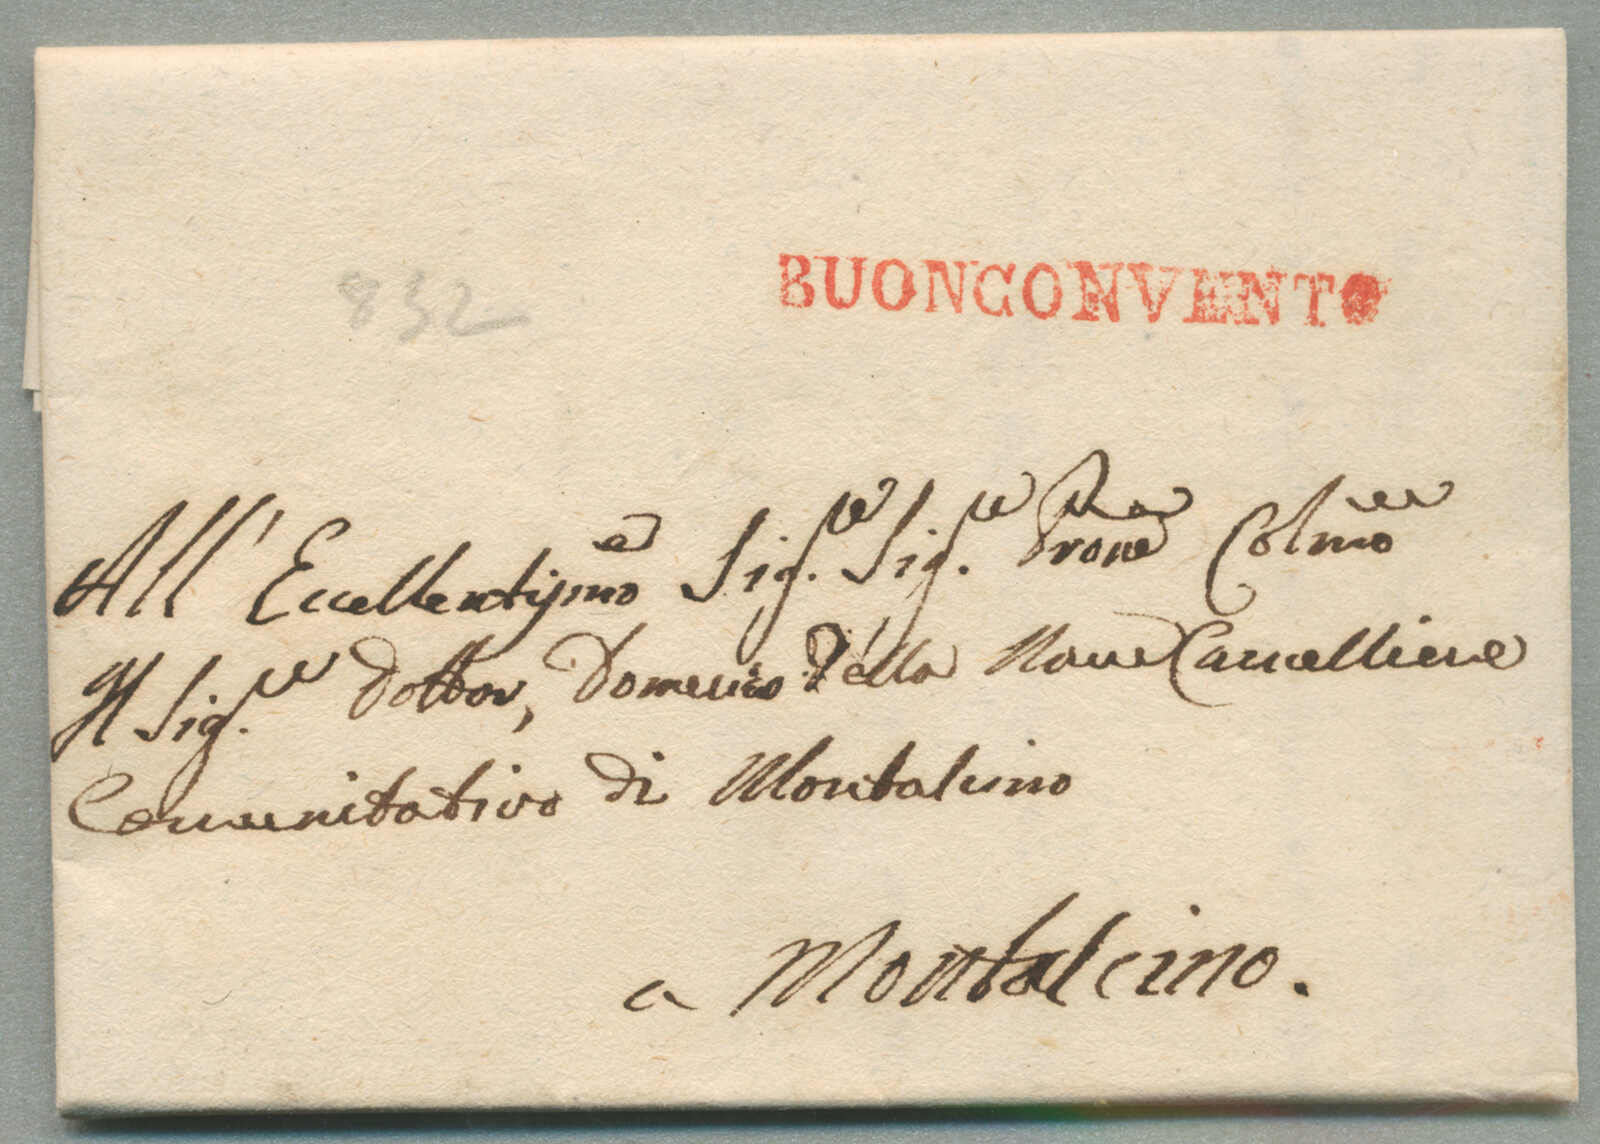 BUONCONVENTO
832
All' Eccellentissmo Sig.re Sig.re Prone Colmo
Il Sig.re Dottor, Domenico Della Nave Cancelliere
Comunitativo di Montalcino
a Montalcino.